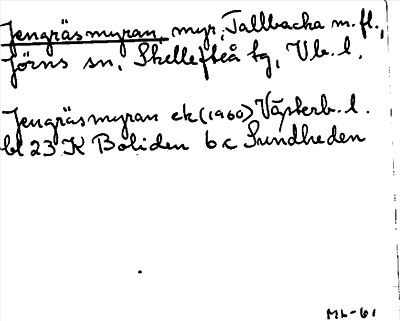 Jengräsmyran, myr, Tallbacka m.fl.,
Jörns sn, Skellefteå tg, Vb. l.
Jengräsmyran ek (1960) Västerb. l.
bl 23 K Boliden 6 c Sundheden
Mh-61